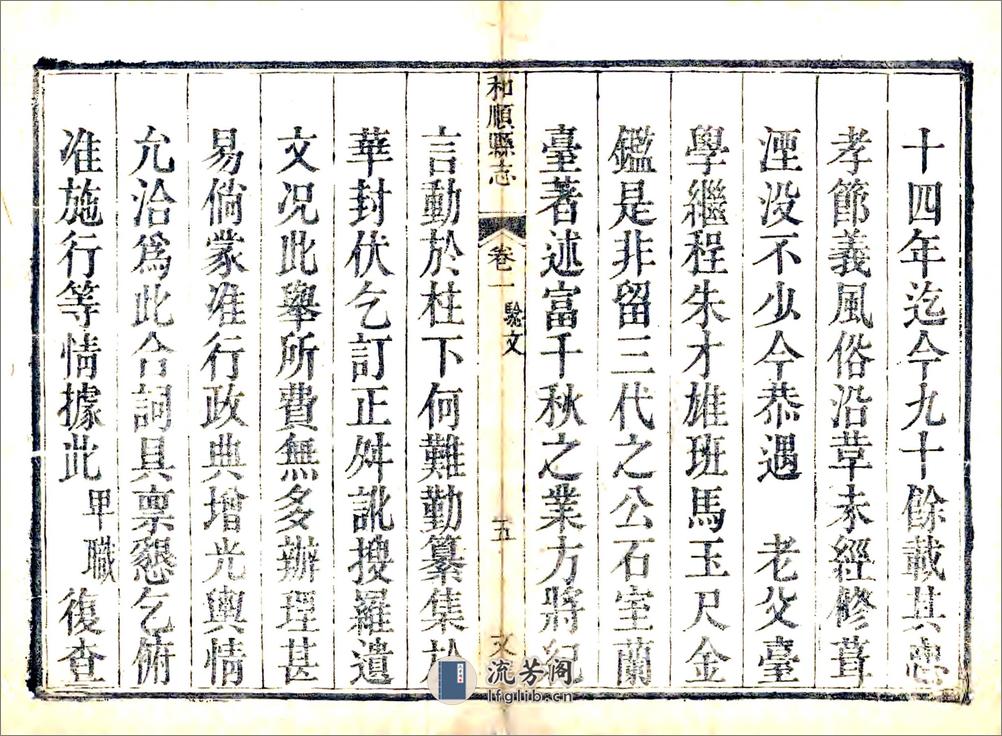 十四年迄今九十餘載其忠
孝節義風俗沿革未經修葺
湮没不少今恭遇　老父臺
學繼程朱才雄班馬玉尺金
鑑是非留三代之公石室蘭
臺著述富千秋之業方將紀
和順縣志　卷一　驗文　五　文
言動於柱下何難勤纂集於
華封伏乞訂正舛訛搜羅遺
文况此舉所費無多辦理甚
易倘蒙准行政典增光輿情
允洽爲此合詞具禀懇乞俯
准施行等情據此卑職復查
流芳阁
lfglib.cn